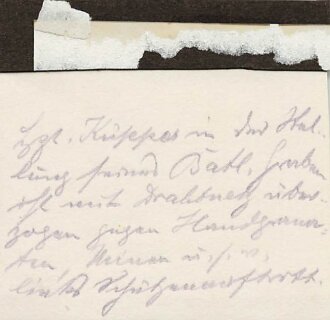 Lgt. Küppes in der Stel-
lung seines Batl. Graben
ist mit Drahtnetz über-
zogen gegen Handgrana-
ten, Minen u.s.w.
links Schützenauftritt.